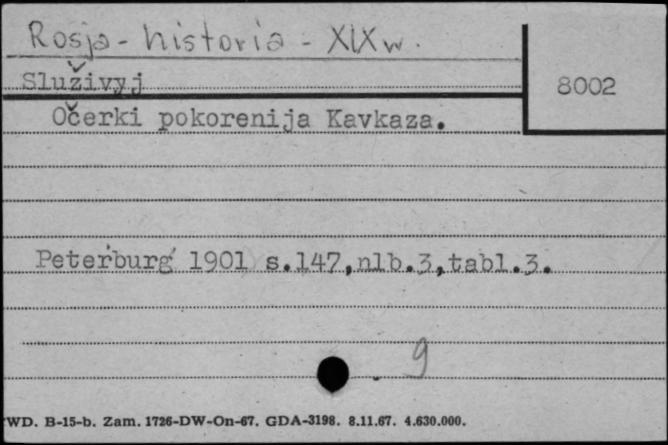 Rosja - historia - XIX w.
Služivyj
8002
Očerki pokorenija Kavkaza.
Peterburg 1901 s.147,nlb.3,tabl.3.
9
WD. B-15-b. Zam. 1726-DW-On-67. GDA-3198. 8.11.67. 4.630.000.